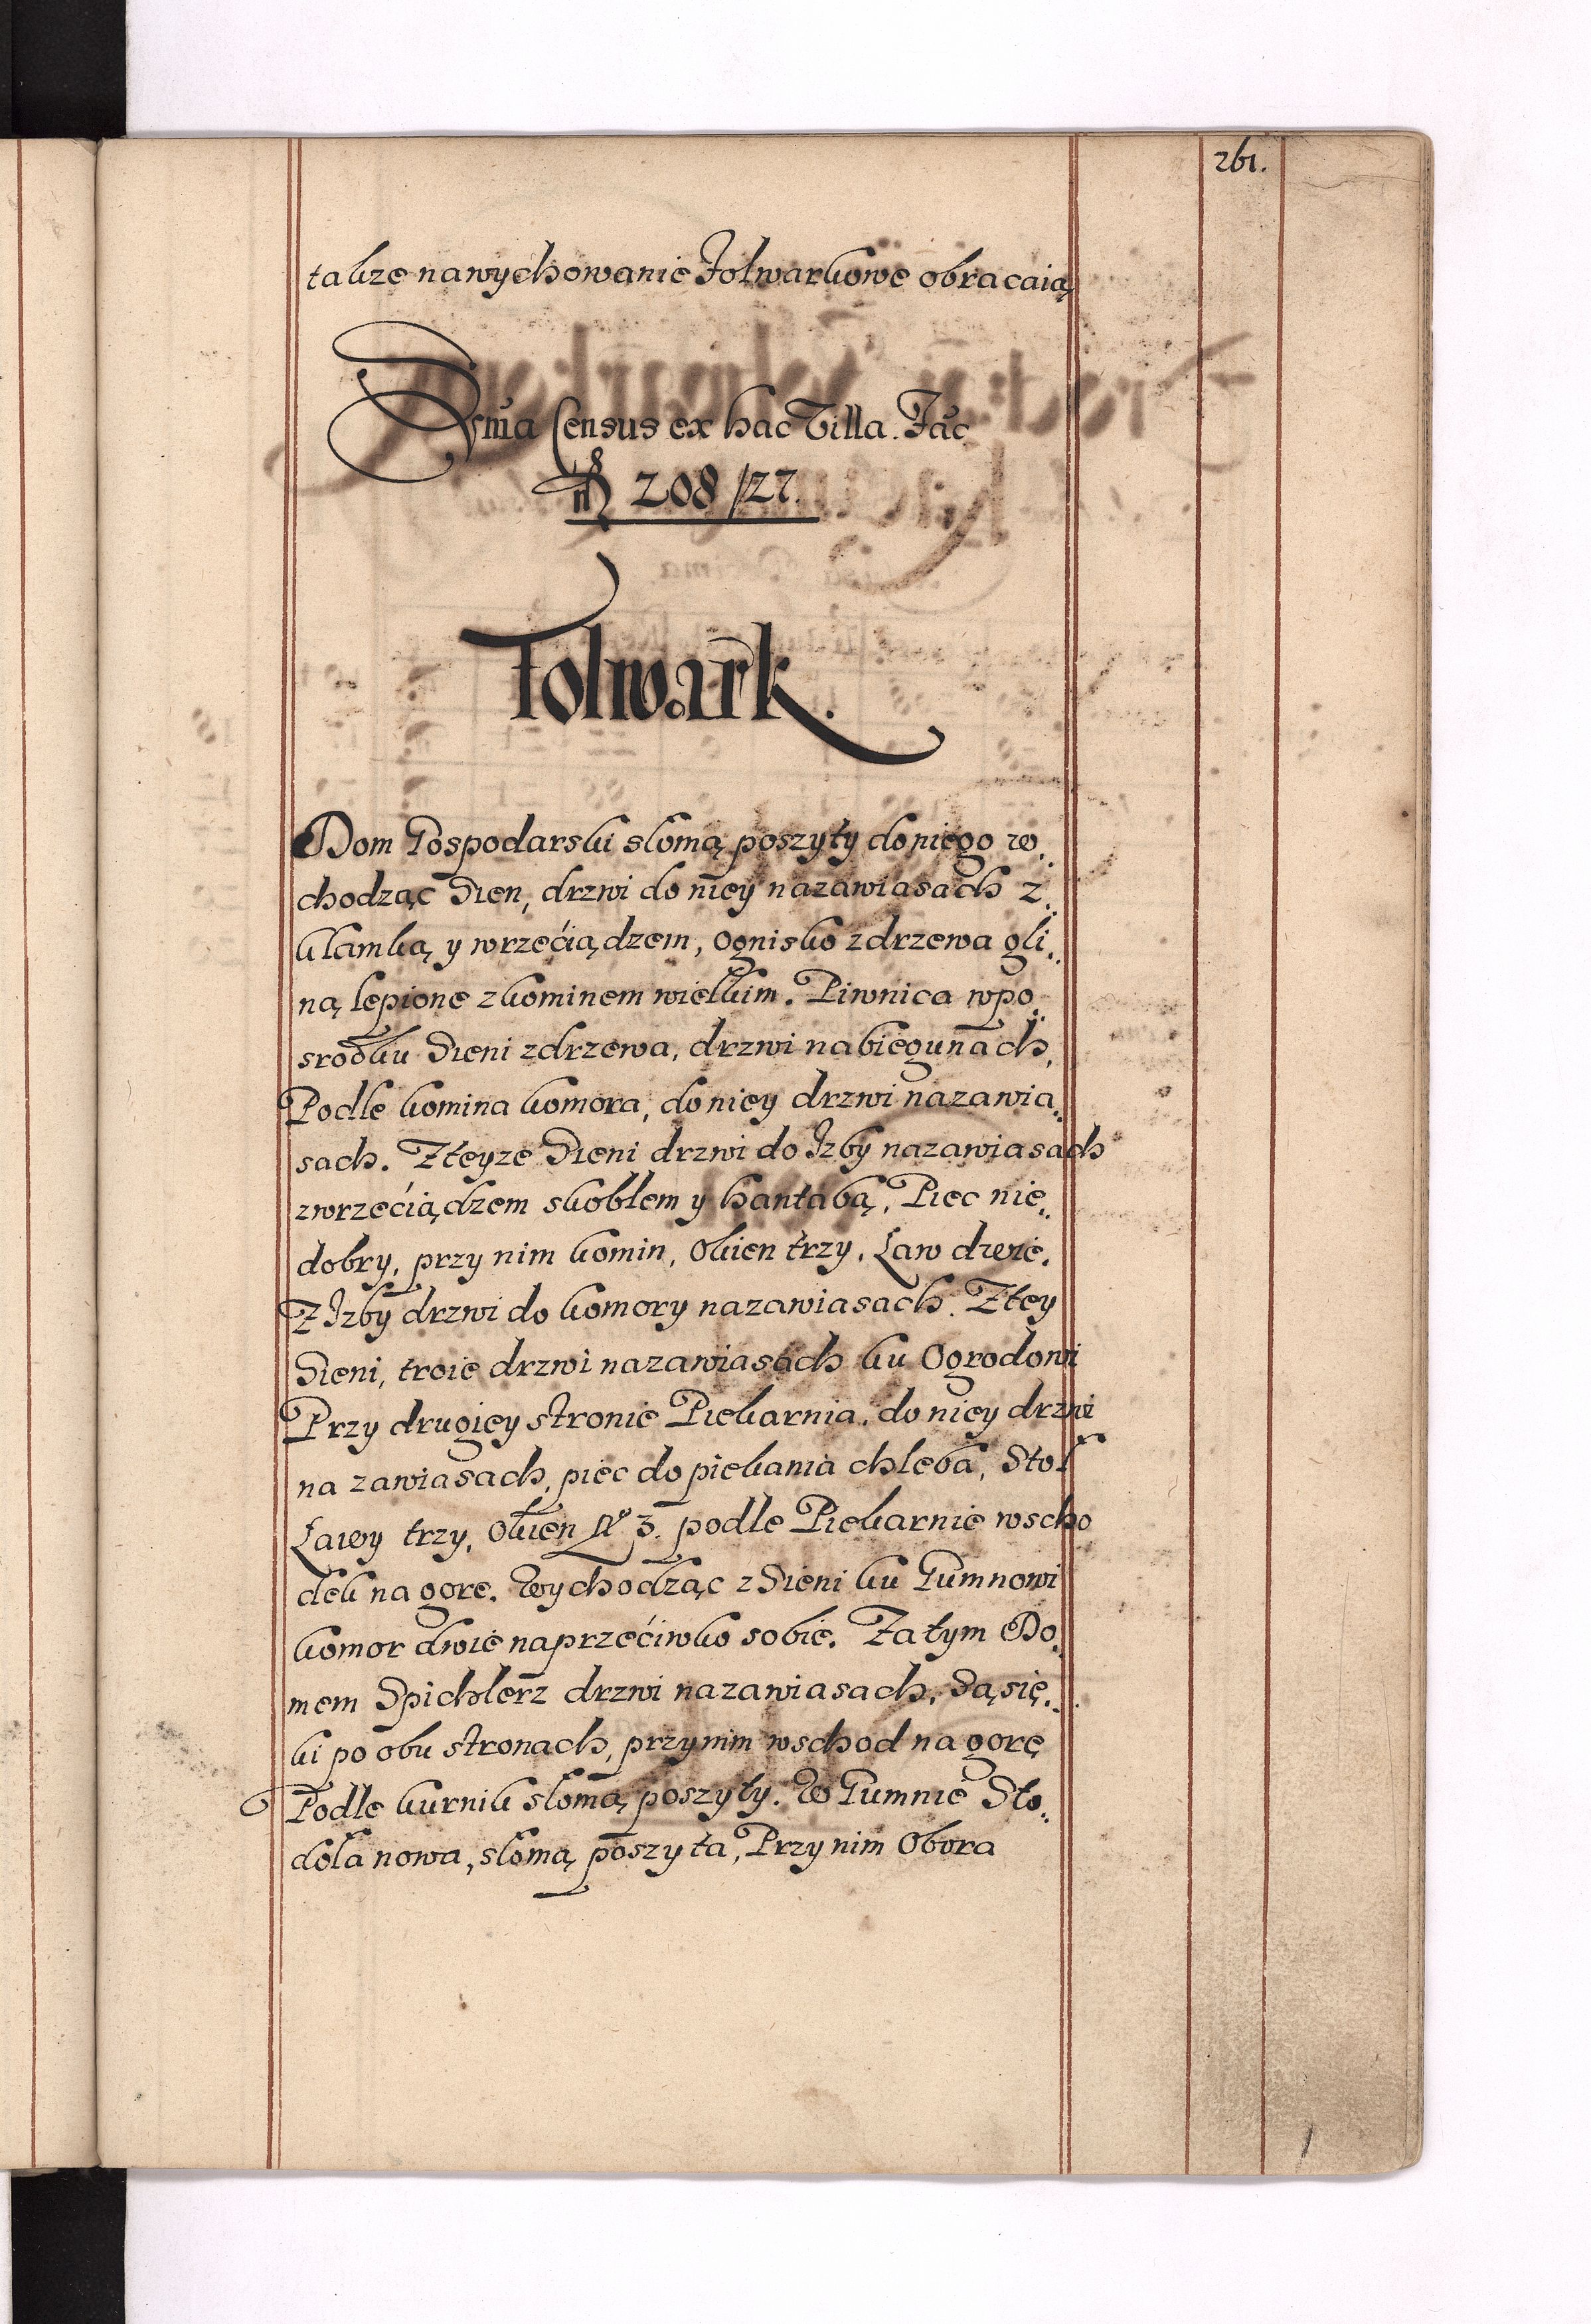 261.
takze na wychowanie Folwarkowe obracaią
Suma Census ex hac Villa. Fac
208 /27.
Folwark.
Dom Gospodarski słomą poszyty do niego w„
chodząc Sien, drzwi do niey na zawiasach z„
klamką y wrzećiądzem, Ognisko z drzewa gli„
ną lepione z kominem wielkim. Piwnica wpo„
srodku Sieni z drzewa, drzwi na biegunach,
Podle komina komora, do niey drzwi na zawia„
sach. Z teyze Sieni drzwi do Izby na zawiasach
z wrzećiądzem skoblem y hantabą, Piec nie„
dobry, przy nim komin, Okien trzy, Ław dwie.
Z Izby drzwi do komory na zawiasach. Z tey
Sieni, troie drzwi na zawiasach ku Ogrodowi
Przy drugiey stronie Piekarnia, do niey drzwi
na zawiasach, piec do piekania chleba, Stoł
Ławy trzy, Okien No 3. podle Piekarnie wscho
dek na gore. Wychodząc z Sieni ku Gumnowi
komor dwie naprzećiwko sobie. Za tym Do„
mem Spichlerz drzwi na zawiasach, Sąsię„
ki po obu stronach, przy nim wschod na gorę
Podle kurnik słomą poszyty. W Gumnie Sto„
doła nowa, słomą poszyta, Przy nim Obora